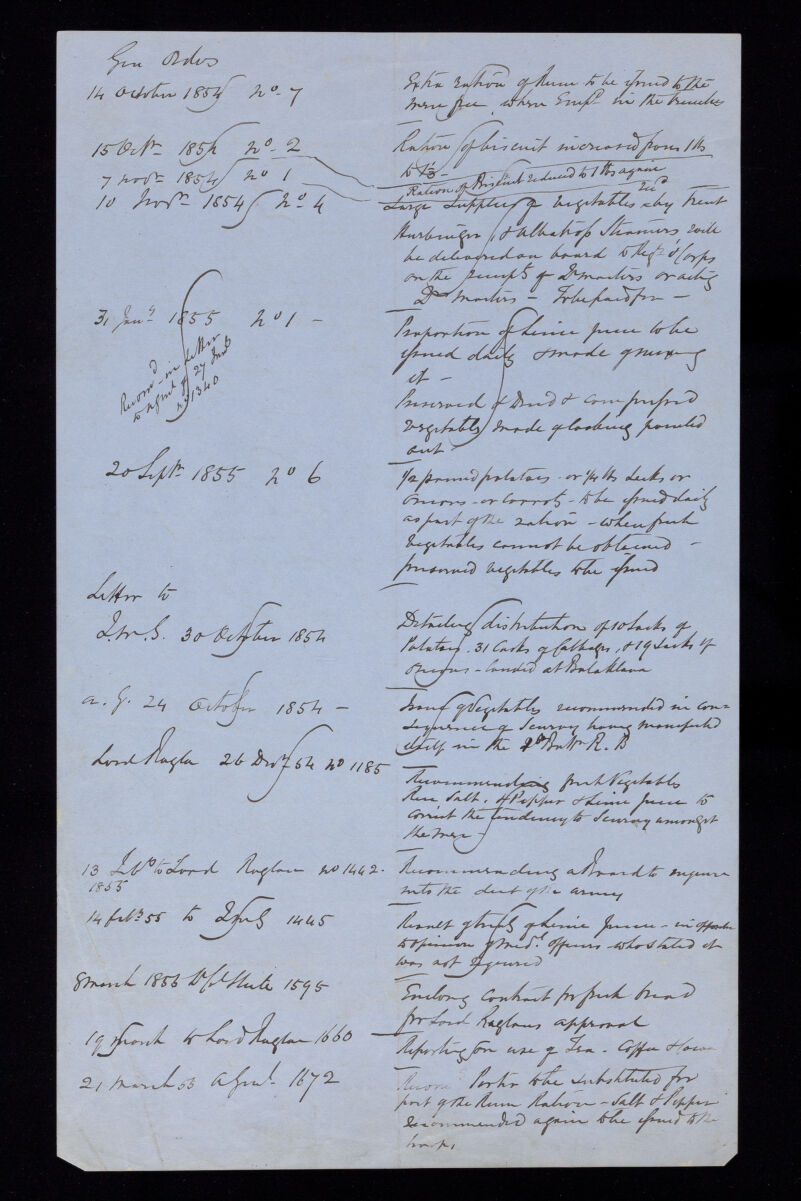 Gen Orders
14 October 1854 No. 7
Extra ration of Rum to be issued to the
men free when Empd. in the trenches
15 Octr. 1854 No. 2
Ration of biscuit increased from 1 lb
to 1½ -
7 Novr. 1854 No 1
Ration of Biscuit reduced to 1 lb again
10 Novr. 1854 No. 4
Large Supplies of vegetables recd by Trent
Harbinger & Albatross Steamers will
be delivered on board to Regts. & Corps
on the receipts of Qr masters or acting
Qr masters - To be paid for -
31 Jany. 1855 No 1 -
Proportion of Lime juice to be
issued daily & mode of mixing
it -
Record - in letter
to agent of 27 Jany
No 1340
Preserved of Dried & compressed
vegetables mode of cooking pointed
out -
20 Septr. 1855 No 6
1/2 pound potatoes - or 1/4 lb Leeks or
onions - or Carrots - to be issued daily
as part of the ration - when fresh
Vegetables cannot be obtained -
preserved vegetables to be issued
Letter to
Q.M.G. 30 October 1854
Detailing distribution of 10 Sacks of
Potatoes. 31 Casks of Cabbages, & 19 Sacks of
onions - landed at Balaklava
A. G. 24 October 1854 -
Issue of Vegetables recommended in con-
sequence of Scurvy having manifested
itself in the 2d Battn R. B
Lord Raglan 26 Decr. 54 No 1185
Recommending fresh Vegetables
Rice Salt. & Pepper & Lime Juice to
correct the tendency to Scurvy amongst
the men -
13 Feby to Lord Raglan No 1442.
1855
Recommending a Board to enquire
into the diet of the army
14 feby 55 to QMG 1445
Result of trials of Lime Juice - in opposition
to opinion of medl. officers - who stated it
was not required
8 March 1855 to Col Steele 1595
Enclosing Contract for fresh bread
for Lord Raglans approval
19 March to Lord Raglan 1660
Reporting on use of Tea. Coffee & Cocoa
21 March 55 A Genl. 1672
Porter to be substituted for
part of the Rum Ration - Salt & Pepper
recommended again to be issued to the
troops.